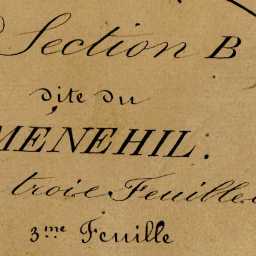 Section B
dite du
MÉNEHIL.
trois Feuilles
3me Feuille